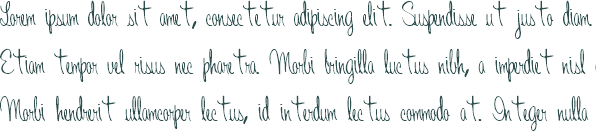 Lorem ipsum dolor sit amet, consectetur adipiscing elit. Suspendisse ut justo diam.
Etiam tempor vel risus nec pharetra. Morbi bringilla luctus nibh, a imperdiet nisl
Morbi hendrerit ullamcorper lectus, id interdum lectus commodo at. Integer nulla